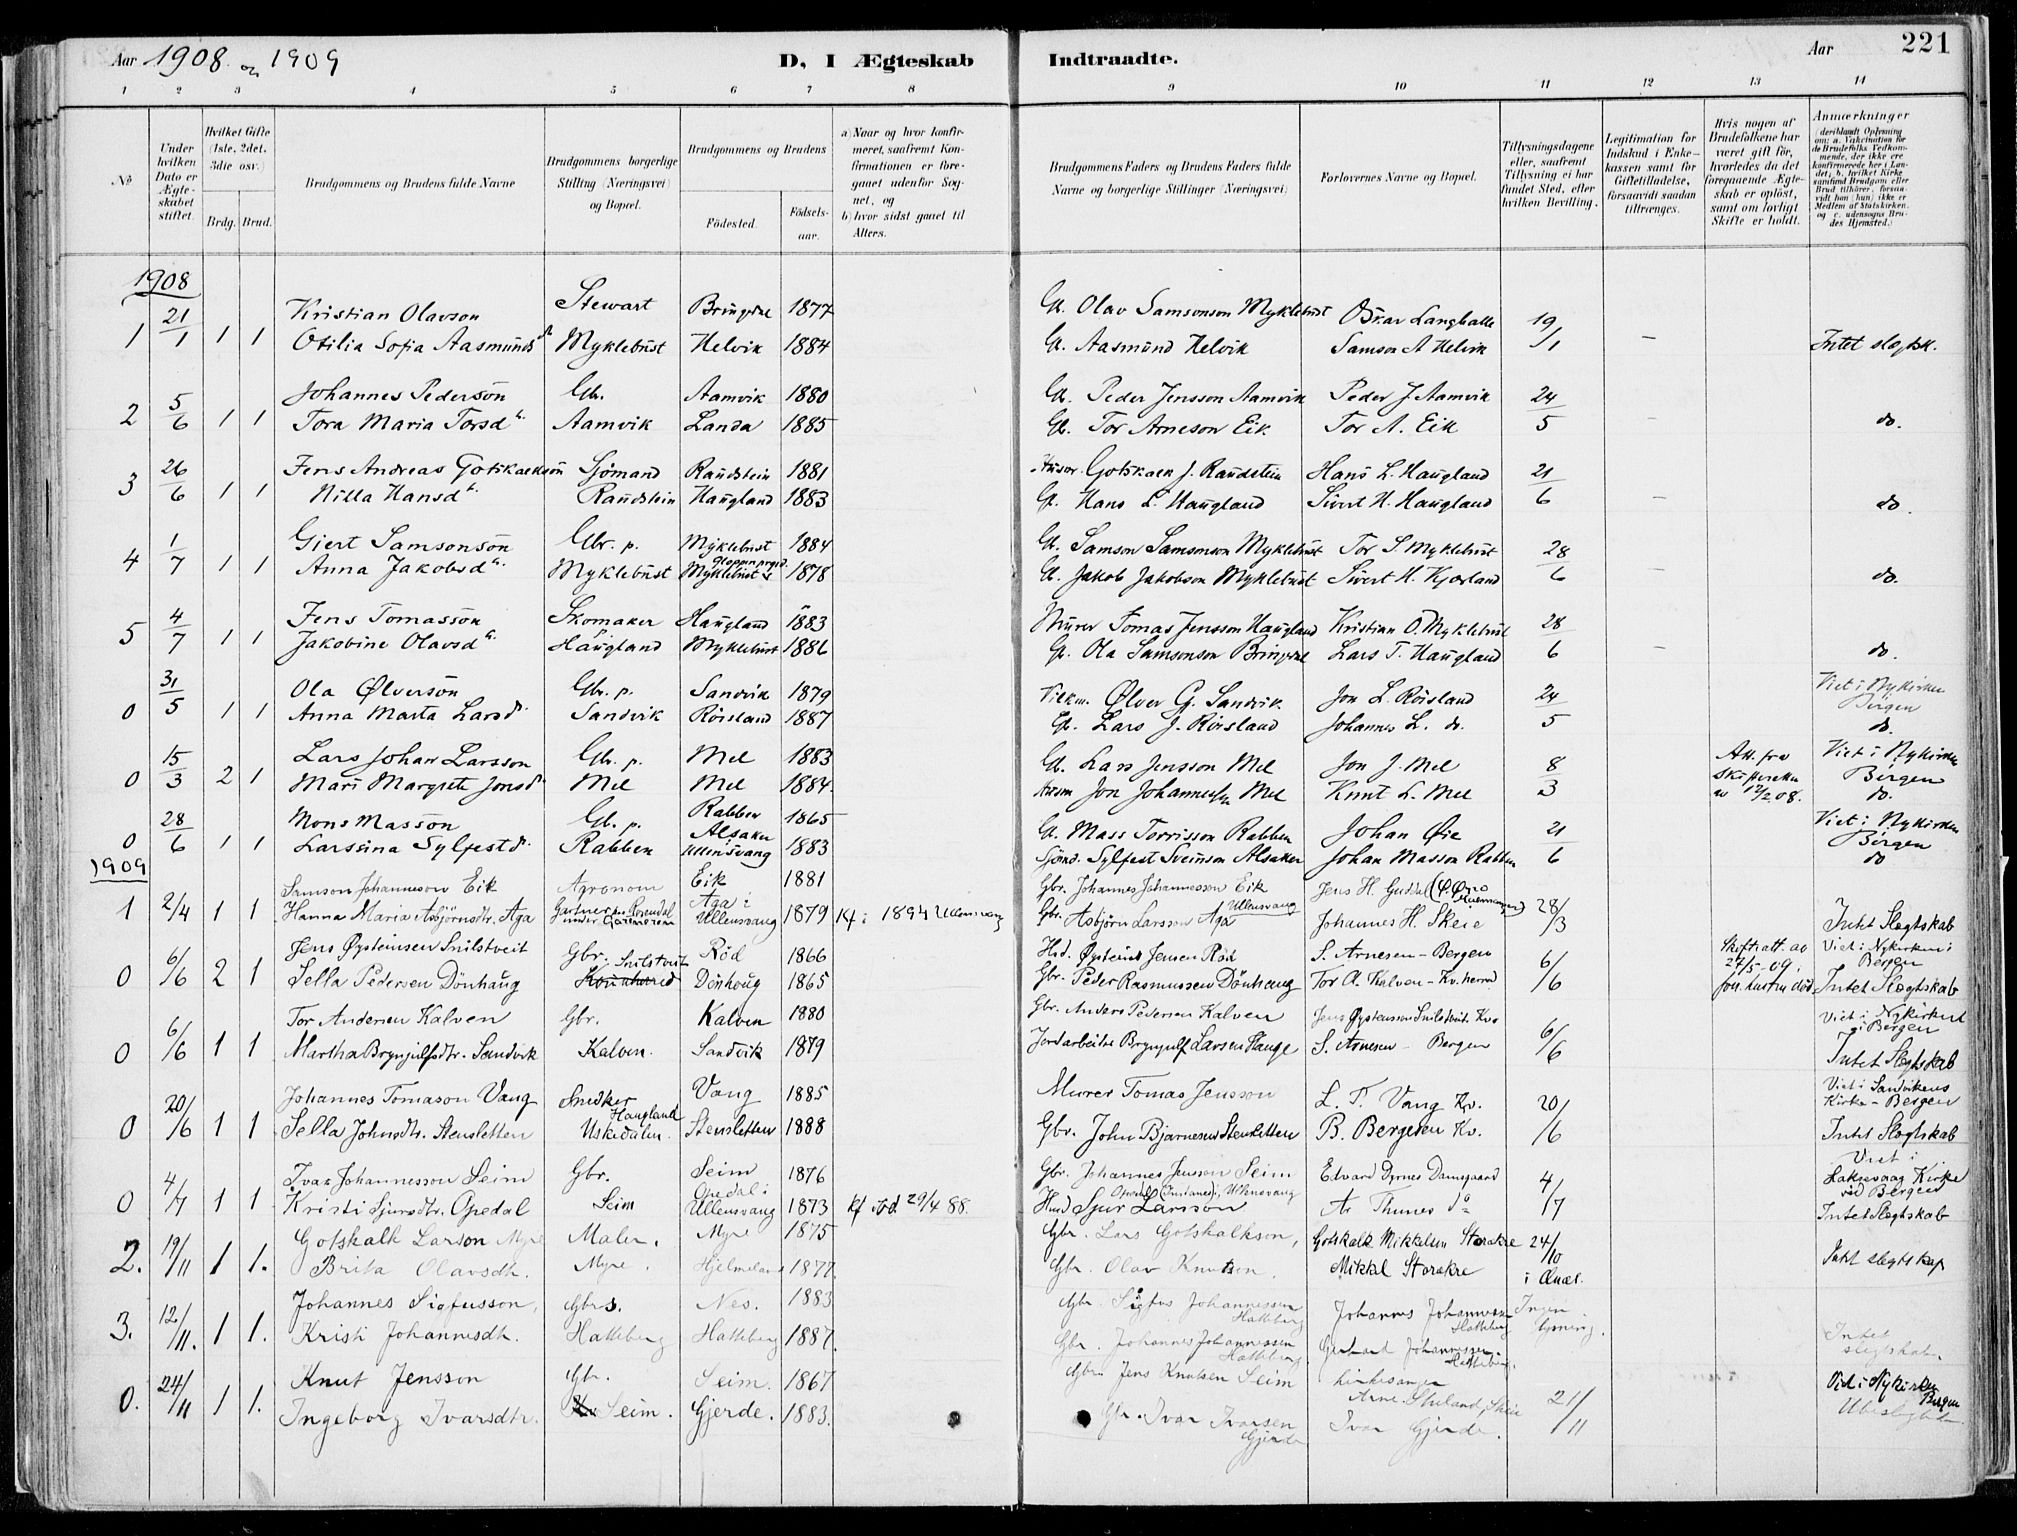 Aar 1908 og 1909
D, I Ægteskab Indtraadte.
Aar
221
1 2 3 4 5 6 7 8 9 10 11 12 13 14
No
Under hvilken Dato er Ægteskabet stiftet.
Hvilket Gifte (1ste, 2det, 3die osv.)
Brdg. Brud.
Brudgommens og Brudens fulde Navne
Brudgommens borgerlige Stilling (Næringsvei) og Bopæl.
Brudgommens og Brudens
Födested. Födselsaar.
a) Naar og hvor konfirmeret, saafremt Konfirmationen er foregaaet udenfor Sognet, og
b) hvor sidst gaaet til Alters.
Brudgommens Faders og Brudens Faders fulde Navne og borgerlige Stillinger (Næringsvei)
Forlovernes Navne og Bopæl.
Tillysningsdagene eller, saafremt Tillysning ei har fundet Sted, efter hvilken Bevilling.
Legitimation for Indskud i Enkekassen samt for Giftetilladelse, forsaavidt saadan tiltrænges.
Hvis nogen af Brudefolkene har været gift för, hvorledes da det foregaaende Ægteskab er oplöst, samt om lovligt Skifte er holdt.
Anmærkninger (deriblandt Oplysning om: a. Vakcination for de Brudefolks Vedkommende, der ikke ere konfirmerede her i Landet; b. hvilket Kirkesamfund Brudgom eller Brud tilhörer, forsaavidt han (hun) ikke er Medlem af Statskirken, og c. udensogns Brudes Hjemsted.)
1908
21/1 Kristian Olavson Stewart Bringdal 1877 Gb. Olav Samsonson Myklebust Oskar Langballe 19/1
1 1 1 Otilia Sofia Aasmundsd. Myklebust Helvik 1884 G. Aasmund Helvik Samson A Helvik - Intet slegtsk.
5/6 Johannes Pederson Gbr. Aamvik 1880 Gb. Peder Jensson Aamvik Peder J Aamvik 24/5
2 1 1 Tora Maria Torsdtr. Aamvik Landa 1885 Gb. Tor Arneson Eik. Tor A. Eik - do.
26/6 Jens Andreas Gotskalkson Sjömand Raudstein 1881 Gotskalk J. Raudstein Hans L. Haugland 21/6
3 1 1 Nilla Hansdtr. Raudstein Haugland 1883 Gb. Hans L. Haugland Sivert H. Haugland - do.
1/7 Giert Samsonson Gbr. p. Myklebust 1884 Gb. Samson Samsonson Myklebust Tor S. Myklebust 28/6
4 1 1 Anna Jakobsdtr. Myklebust Myklebust i Gloppen prgd. 1878 Gb. Jakob Jakobson Myklebust Sivert H. Kjærland - do.
4/7 Jens Tomasson Skomaker Haugland 1883 Murer Tomas Jensson Haugland Kristian O. Myklebust 28/6
5 1 1 Jakobine Olavsdtr. p Haugland Myklebust 1886 Gb. Ola Samsonson Bringdal Lars T. Haugland - do.
31/5 Ola Ølverson Gbr. p. Sandvik 1879 Ølver G. Sandvik. Jon L. Röisland 24/5 Viet i Nykirken Bergen
0 1 1 Anna Marta Larsd. Sandvik Röisland 1887 Gb. Lars J. Röisland Johannes L. do. do.
15/3 Lars Johan Larsson Gb. p. Mel 1883 Gb. Lars Jensson Mel Jon J. Mel 8/3 Att. fra Skifteretten 12/2 08. Viet i Nykirken Bergen
0 2 1 Mari Margrete Jonsd. Mel Mel 1884 Jon Johannessen Mel Knut L. Mel do.
28/6 Mons Masson Gb. p. Rabben 1865 Gb. Mass Torrisson Rabben Johan Øie 21/6 Viet i Nykirken Bergen
0 1 1 Larssina Sylfestd. Rabben Alsaker Ullensvang 1883 Sjömd. Sylfest Sveinson Alsaker Johan Masson Rabben do
1909
Samson Johanneson Eik Agronom Eik 1881 Gbr. Johannes Johannesson Eik Jens H. Guddal
1 2/4 1 1 Hanna Maria Asbjörnsdtr. Aga Gartner Rosendal Aga i Ullensvang 1879 Kf. i 1894 Ullensvang Gbr. Asbjörn Larsson Aga Ullensvang Johannes H. Skeie 28/3 Intet Slegtskab
Jens Øysteinsen Snilstveit Gbr. Snilstveit Röd 1866 Hsd. Øystein Jensen Röd S. Arnesen - Bergen 6/6 Skifteatt. av 27/5-09. Viet i Nykirken i Bergen
0 6/6 2 1 Sella Pedersen Dönhaug Dönhoug 1865 Gbr. Peder Rasmussen Dönhaug Tor A. Kalven - Kv.herred för. hustru död. Intet Slegtskab
Tor Andersen Kalven Gbr. Kalven 1880 Gbr. Anders Pedersen Kalven Jens Øystensson Snilstveit. Kv. Viet i Nykirken i Bergen
0 6/6 1 1 Martha Brynjulfsdtr. Sandvik Kalven. Sandvik 1879 Jordarbeider Brynjulf Larsen Hauge S. Arnesen - Bergen 6/6 Intet Slegtskab
Johannes Tomason Vang Snedker Vang 1885 Murer Tomas Jensson L. T. Vang Kv. Viet i Sandvikens Kirke - Bergen
0 20/6 1 1 Sella Johnsdtr. Stensletten Haugland Uskedalen. Stensletten 1888 Gbr. John Bjarnesen Stensletten B. Bergesen Kv. 20/6 Intet Slegtskab
Ivar Johannesson Seim Gbr. Seim 1876 Gbr. Johannes Jensson Seim Edvard Dyrnes Damsgaard Viet i Laksevaag Kirke ved Bergen
0 4/7 1 1 Kristi Sjursdtr. Opedal Seim Opedal i Ullensvang 1873 Kf 29/4 88. Sjur Larsson Ar Thunes do 4/7 Intet Slegtskab
Gotskalk Larson Myre Maler. Myre 1875 Gbr. Lars Gotskalkson, Gotskalk Mikkelsen Storakre 24/10
2. 19/11 1 1. Brita Olavsdtr. Myre. Hjelmeland 1877. Gbr. Olav Knutsen. Mikkel Storakre i Ænes. Intet slegtskap
Johannes Sigfusson, Gbrs. Nes. 1883 Gbr. Sigfus Johannessen Hatteberg Johannes Johannessen Hatteberg Ingen lysning.
3. 12/11. 1 1. Kristi Johannesdtr. Hatteberg Hatteberg 1887. Gbr. Johannes Johannessen Hatteberg Gerhard Johannessen Hatteberg. Intet slegtskab.
Knut Jensson Gbr. Seim. 1867 Gbr. Jens Knutsen Seim kirkesanger Arne Skeie Viet i Nykirken Bergen
0. 24/11 1 1. Ingeborg Ivarsdtr. Seim. Gjerde. 1883. Gbr. Ivar Ivarsen Gjerde Ivar Gjerde. 21/11 Ubeslegtet